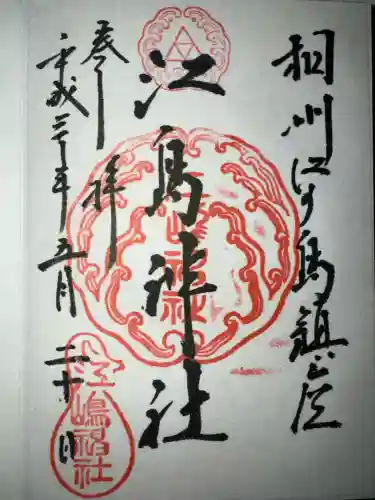 相州江の島鎮座
江島神社
奉拝
平成三十年五月二十日
江嶋神社
江嶋神社